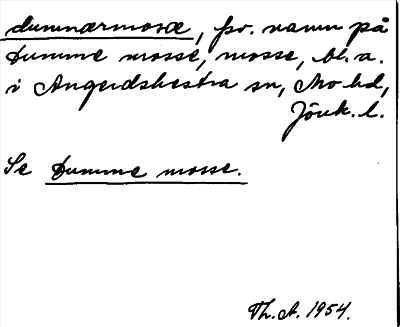 dummærmosæ, fsv. namn på
Dumme mosse, mosse, bl.a.
i Angerdshestra sn, Mo hd,
Jönk. l.
Se Dumme mosse.
Th. A. 1954.